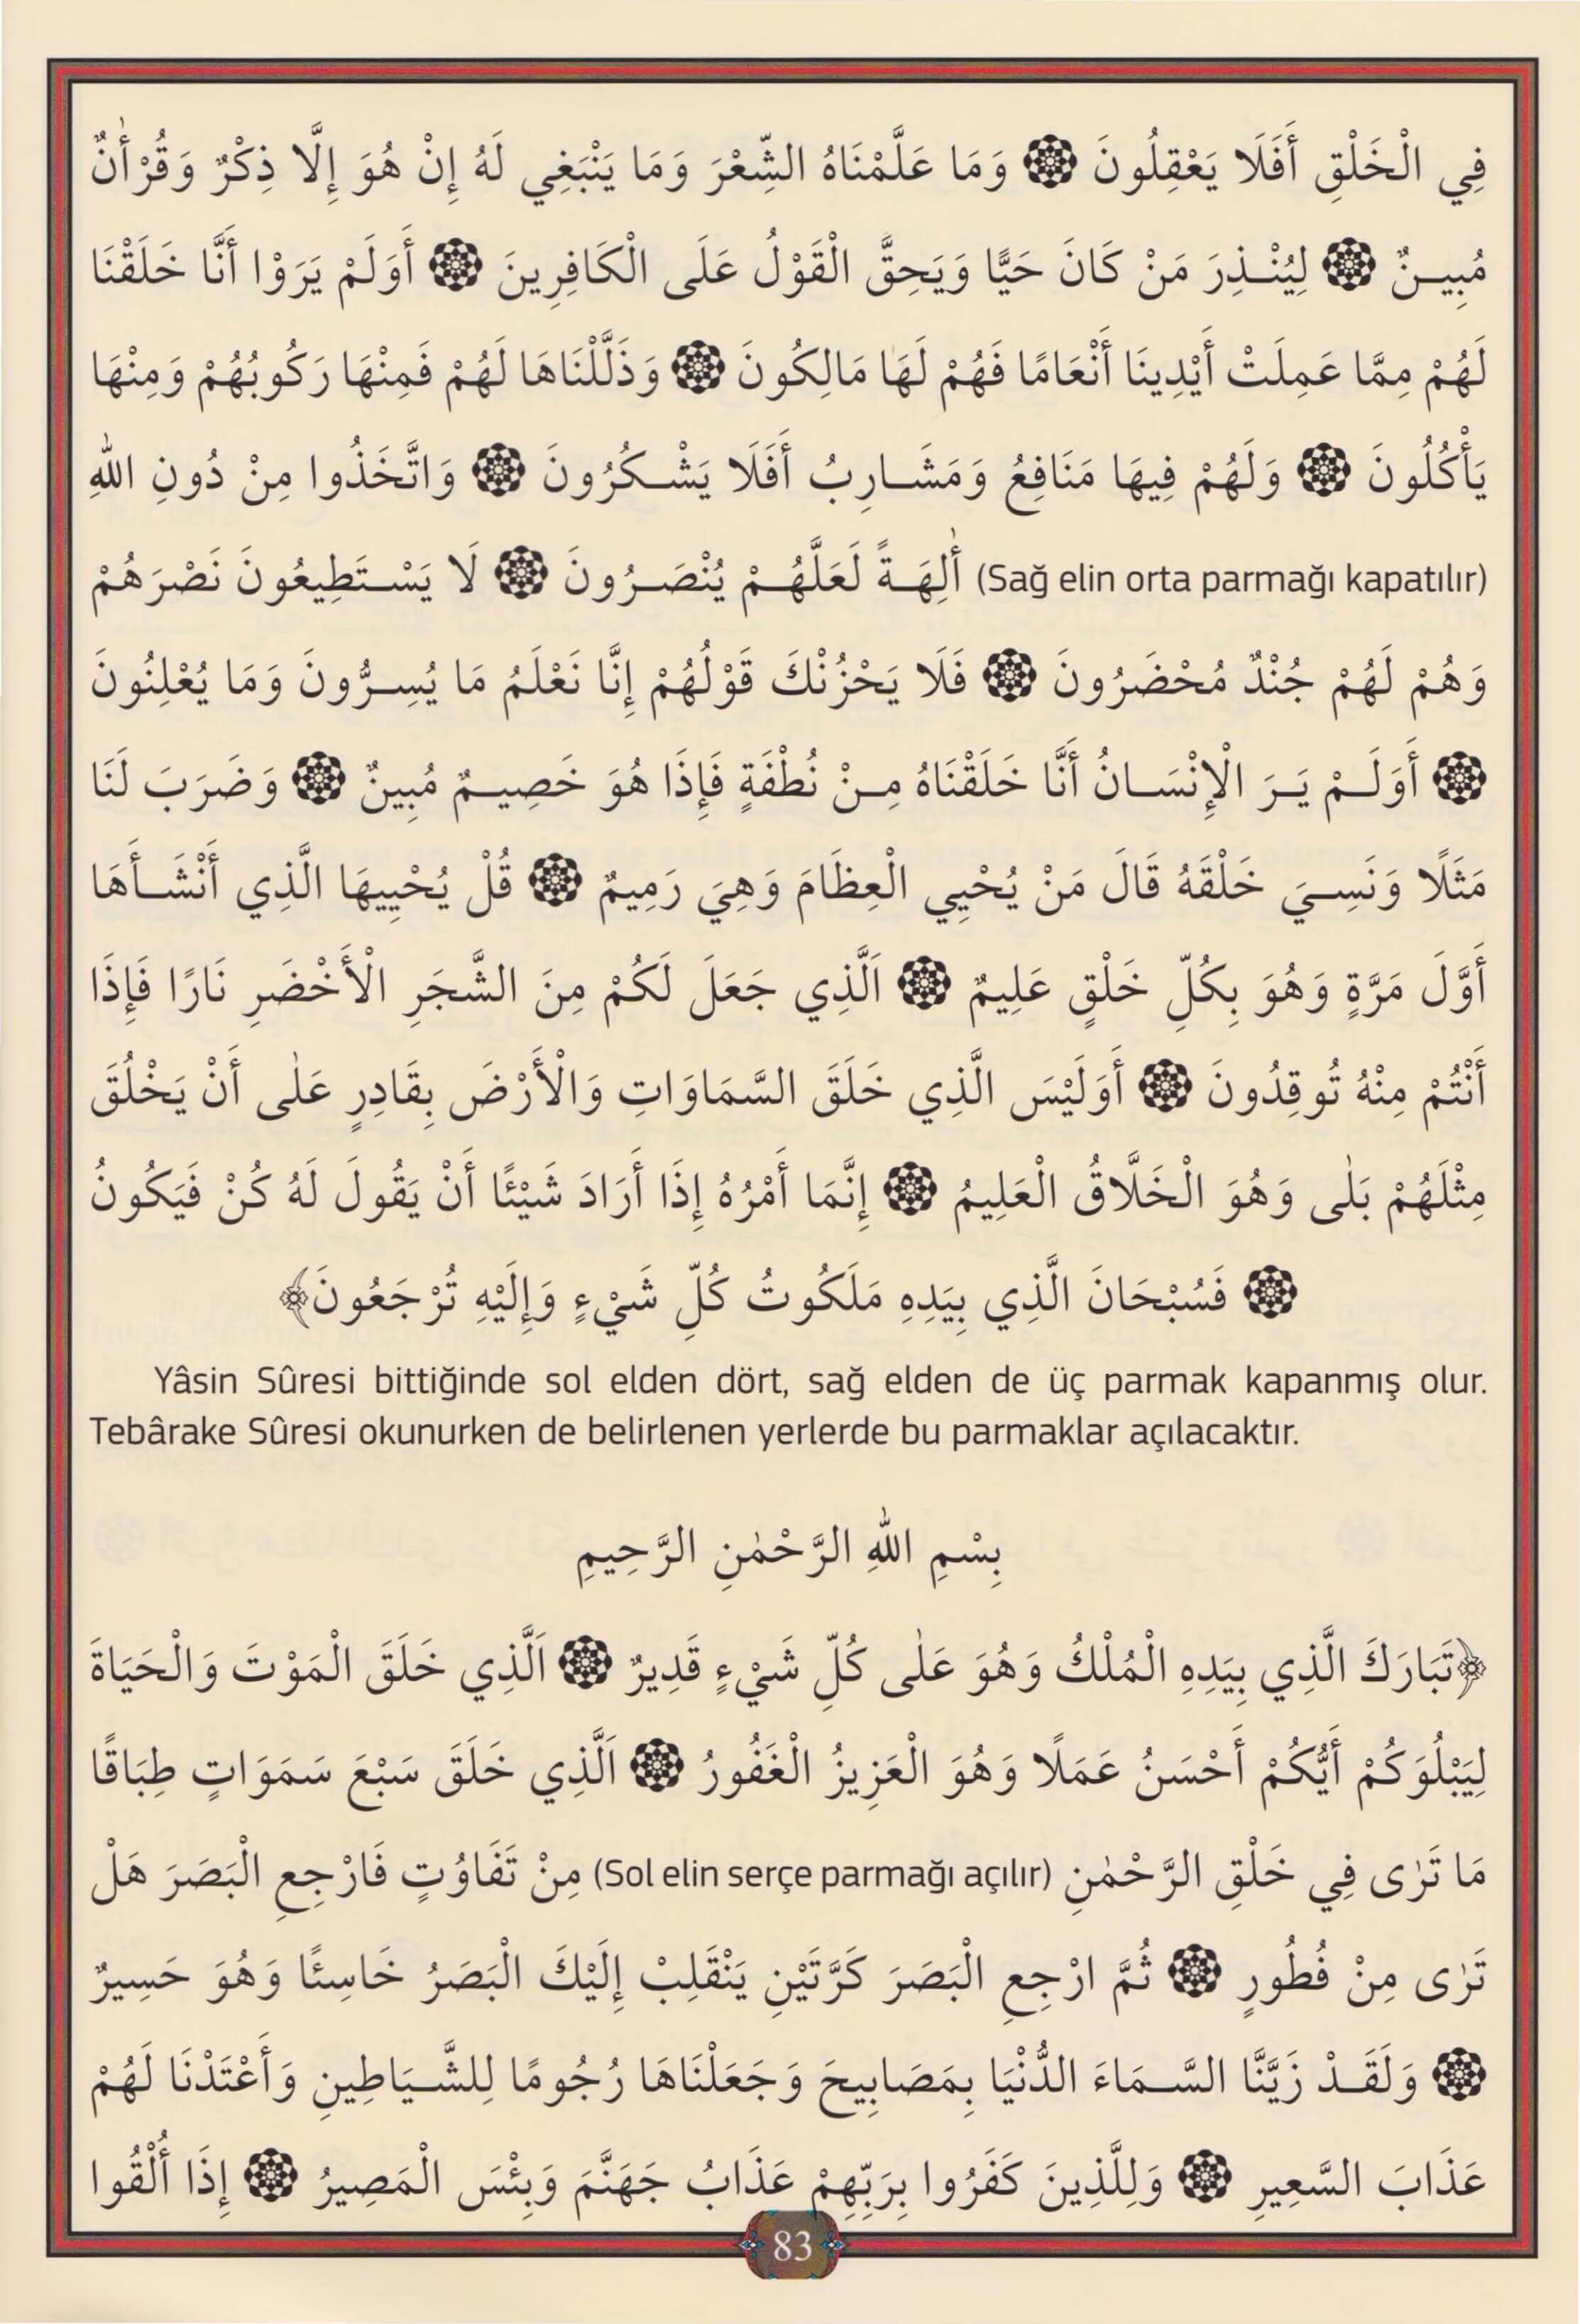 فِي الْخَلْقِ أَفَلَا يَعْقِلُونَ ۞ وَمَا عَلَّمْنَاهُ الشِّعْرَ وَمَا يَنْبَغِي لَهُ إِنْ هُوَ إِلَّا ذِكْرٌ وَقُرْأٰنٌ
مُبِيـنٌ ۞ لِيُنْـذِرَ مَنْ كَانَ حَيًّا وَيَحِقَّ الْقَوْلُ عَلَى الْكَافِرِينَ ۞ أَوَلَمْ يَرَوْا أَنَّا خَلَقْنَا
لَهُمْ مِمَّا عَمِلَتْ أَيْدِينَا أَنْعَامًا فَهُمْ لَهَا مَالِكُونَ ۞ وَذَلَّلْنَاهَا لَهُمْ فَمِنْهَا رَكُوبُهُمْ وَمِنْهَا
يَأْكُلُونَ ۞ وَلَهُمْ فِيهَا مَنَافِعُ وَمَشَـارِبُ أَفَلَا يَشْـكُرُونَ ۞ وَاتَّخَذُوا مِنْ دُونِ اللهِ
(Sağ elin orta parmağı kapatılır) أٰلِهَـةً لَعَلَّهُـمْ يُنْصَـرُونَ ۞ لَا يَسْـتَطِيعُونَ نَصْرَهُمْ
وَهُمْ لَهُمْ جُنْدٌ مُحْضَرُونَ ۞ فَلَا يَحْزُنْكَ قَوْلُهُمْ إِنَّا نَعْلَمُ مَا يُسِـرُّونَ وَمَا يُعْلِنُونَ
۞ أَوَلَـمْ يَـرَ الْإِنْسَـانُ أَنَّا خَلَقْنَاهُ مِـنْ نُطْفَةٍ فَإِذَا هُوَ خَصِيـمٌ مُبِينٌ ۞ وَضَرَبَ لَنَا
مَثَلًا وَنَسِـيَ خَلْقَهُ قَالَ مَنْ يُحْيِي الْعِظَامَ وَهِيَ رَمِيمٌ ۞ قُلْ يُحْيِيهَا الَّذِي أَنْشَـأَهَا
أَوَّلَ مَرَّةٍ وَهُوَ بِكُلِّ خَلْقٍ عَلِيمٌ ۞ اَلَّذِي جَعَلَ لَكُمْ مِنَ الشَّجَرِ الْأَخْضَرِ نَارًا فَإِذَا
أَنْتُمْ مِنْهُ تُوقِدُونَ ۞ أَوَلَيْسَ الَّذِي خَلَقَ السَّمَاوَاتِ وَالْأَرْضَ بِقَادِرٍ عَلٰى أَنْ يَخْلُقَ
مِثْلَهُمْ بَلٰى وَهُوَ الْخَلَّاقُ الْعَلِيمُ ۞ إِنَّمَا أَمْرُهُ إِذَا أَرَادَ شَيْئًا أَنْ يَقُولَ لَهُ كُنْ فَيَكُونُ
۞ فَسُبْحَانَ الَّذِي بِيَدِهِ مَلَكُوتُ كُلِّ شَيْءٍ وَإِلَيْهِ تُرْجَعُونَ﴾
Yâsin Sûresi bittiğinde sol elden dört, sağ elden de üç parmak kapanmış olur.
Tebârake Sûresi okunurken de belirlenen yerlerde bu parmaklar açılacaktır.
بِسْمِ اللهِ الرَّحْمٰنِ الرَّحِيمِ
﴿تَبَارَكَ الَّذِي بِيَدِهِ الْمُلْكُ وَهُوَ عَلٰى كُلِّ شَيْءٍ قَدِيرٌ ۞ اَلَّذِي خَلَقَ الْمَوْتَ وَالْحَيَاةَ
لِيَبْلُوَكُمْ أَيُّكُمْ أَحْسَنُ عَمَلًا وَهُوَ الْعَزِيزُ الْغَفُورُ ۞ اَلَّذِي خَلَقَ سَبْعَ سَمَوَاتٍ طِبَاقًا
مَا تَرٰى فِي خَلْقِ الرَّحْمٰنِ (Sol elin serçe parmağı açılır) مِنْ تَفَاوُتٍ فَارْجِعِ الْبَصَرَ هَلْ
تَرٰى مِنْ فُطُورٍ ۞ ثُمَّ ارْجِعِ الْبَصَرَ كَرَّتَيْنِ يَنْقَلِبْ إِلَيْكَ الْبَصَرُ خَاسِئًا وَهُوَ حَسِيرٌ
۞ وَلَقَـدْ زَيَّنَّا السَّـمَاءَ الدُّنْيَا بِمَصَابِيحَ وَجَعَلْنَاهَا رُجُومًا لِلشَّـيَاطِينِ وَأَعْتَدْنَا لَهُمْ
عَذَابَ السَّعِيرِ ۞ وَلِلَّذِينَ كَفَرُوا بِرَبِّهِمْ عَذَابُ جَهَنَّمَ وَبِئْسَ الْمَصِيرُ ۞ إِذَا أُلْقُوا
83